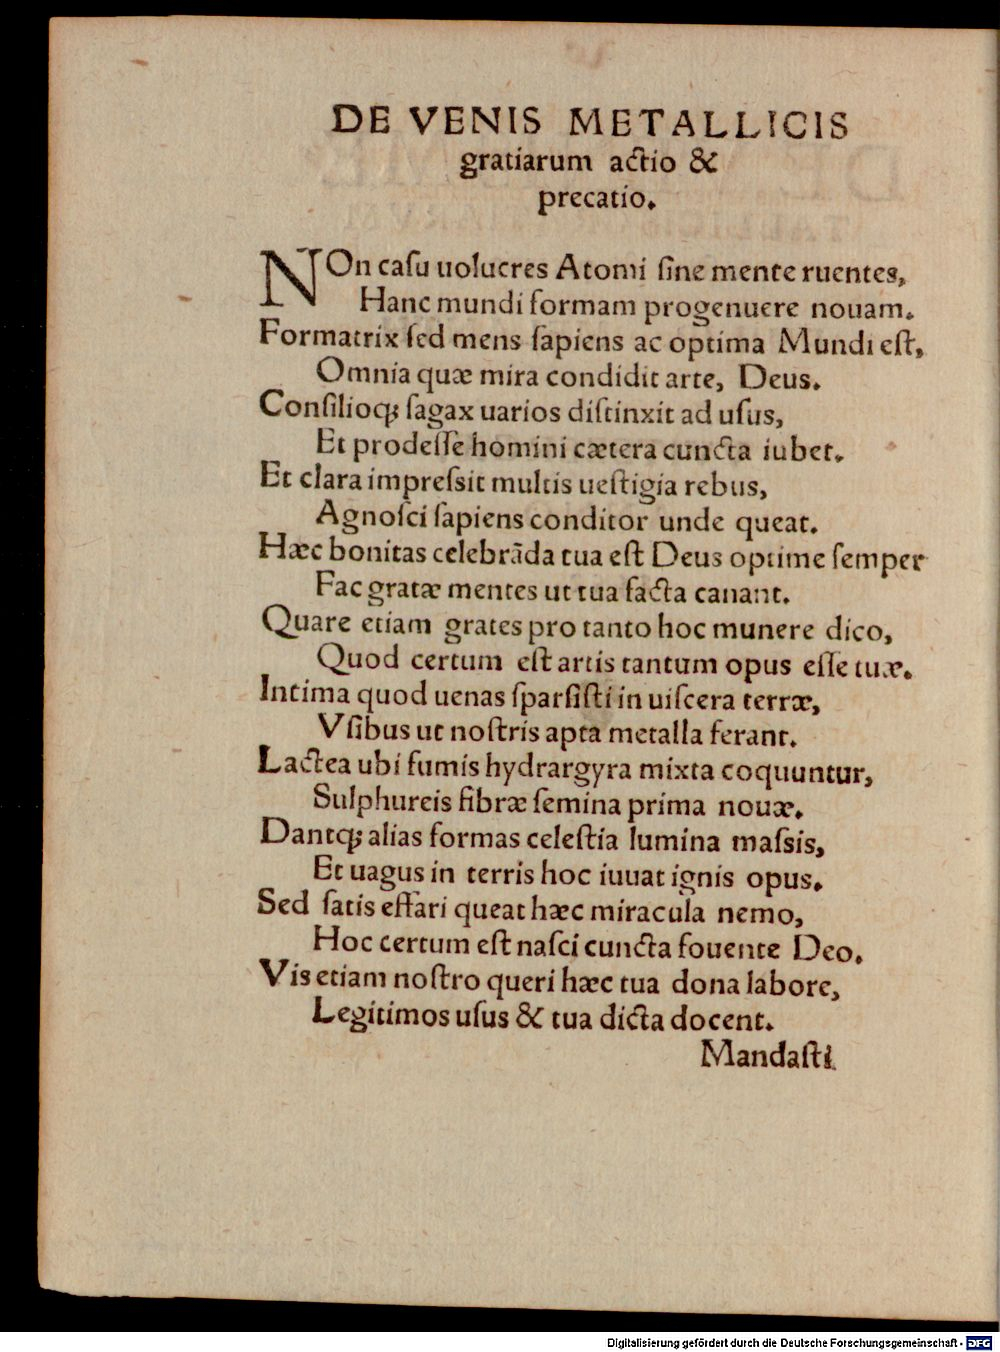 DE VENIS METALLICIS
gratiarum actio &
precatio.
NOn caſu uolucres Atomi ſine mente ruentes,
Hanc mundi formam progenuere nouam.
Formatrix ſed mens ſapiens ac optima Mundi eſt,
Omnia quæ mira condidit arte, Deus.
Conſilioq; ſagax uarios diſtinxit ad uſus,
Et prodeſſe homini cætera cuncta iubet.
Et clara impreſsit multis ueſtigia rebus,
Agnoſci ſapiens conditor unde queat.
Hæc bonitas celebrāda tua eſt Deus optime ſemper
Fac gratæ mentes ut tua facta canant.
Quare etiam grates pro tanto hoc munere dico,
Quod certum eſt artis tantum opus eſſe tuæ.
Intima quod uenas ſparſiſti in uiſcera terræ,
Vſibus ut noſtris apta metalla ferant.
Lactea ubi fumis hydrargyra mixta coquuntur,
Sulphureis fibræ ſemina prima nouæ.
Dantq; alias formas celeſtia lumina maſsis,
Et uagus in terris hoc iuuat ignis opus.
Sed ſatis effari queat hæc miracula nemo,
Hoc certum eſt naſci cuncta fouente Deo.
Vis etiam noſtro queri hæc tua dona labore,
Legitimos uſus & tua dicta docent.
Mandaſti
Digitalisierung gefördert durch die Deutsche Forschungsgemeinschaft - DFG